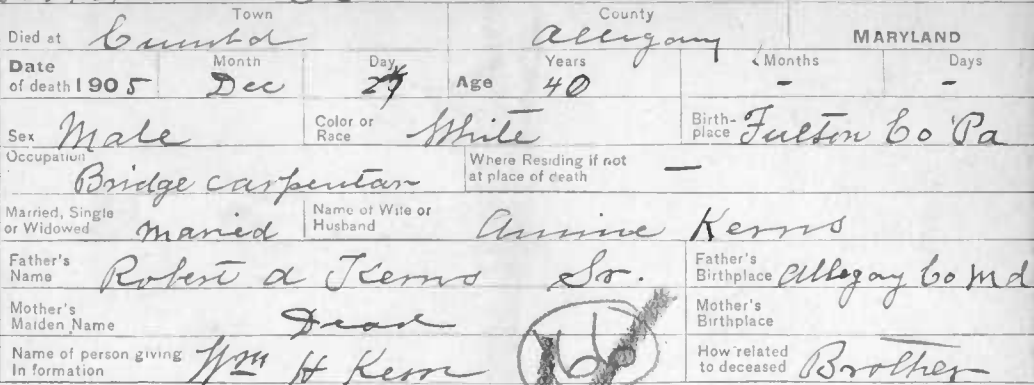 Town County
Died at Cumbd Allegany MARYLAND
Date Month Day Years Months Days
of death 1905 Dec Age 40 - -
Sex Male Color or Race White Birth-place Fulton Co Pa
Occupation Bridge carpentar Where Residing if not at place of death —
Married, Single or Widowed Maried Name of Wife or Husband Annie Kerns
Father's Name Robert A Kerns Sr. Father's Birthplace Allegay Co Md
Mother's Maiden Name Dead Mother's Birthplace
Name of person giving In formation Wm H Kern How related to deceased Brother